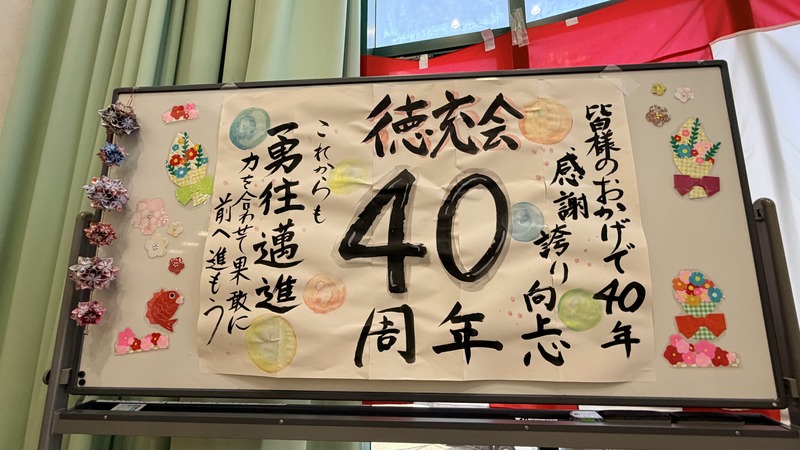 皆様のおかげで40年
感謝 誇り 向上心
徳充会
40
周年
これからも
勇往邁進
力を合わせて果敢に
前へ進もう